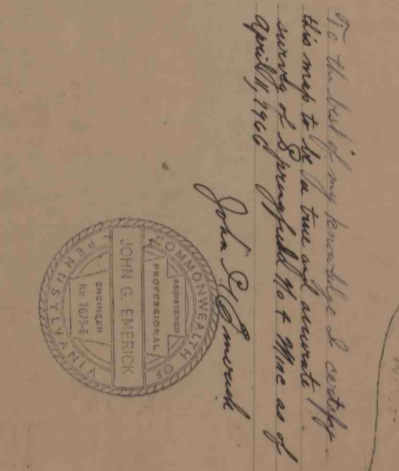 To the best of my knowledge I certify
this map to be a true and accurate
survey of Springfield No 4 Mine as of
April 11, 1966
John G. Emerick
COMMONWEALTH OF
REGISTERED
PROFESSIONAL
JOHN G. EMERICK
ENGINEER
No 7675-E
PENNSYLVANIA